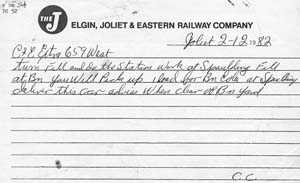 THE J ELGIN, JOLIET & EASTERN RAILWAY COMPANY
Joliet 2-12-1982
C&E Extra 659 West
turn Fall and do the Station work at Spaulding Fall
at Bn You Will Pick up 1 load for Bn Cola at Spaulding
deliver this car advise When Clear of Bn Yard
C.C.